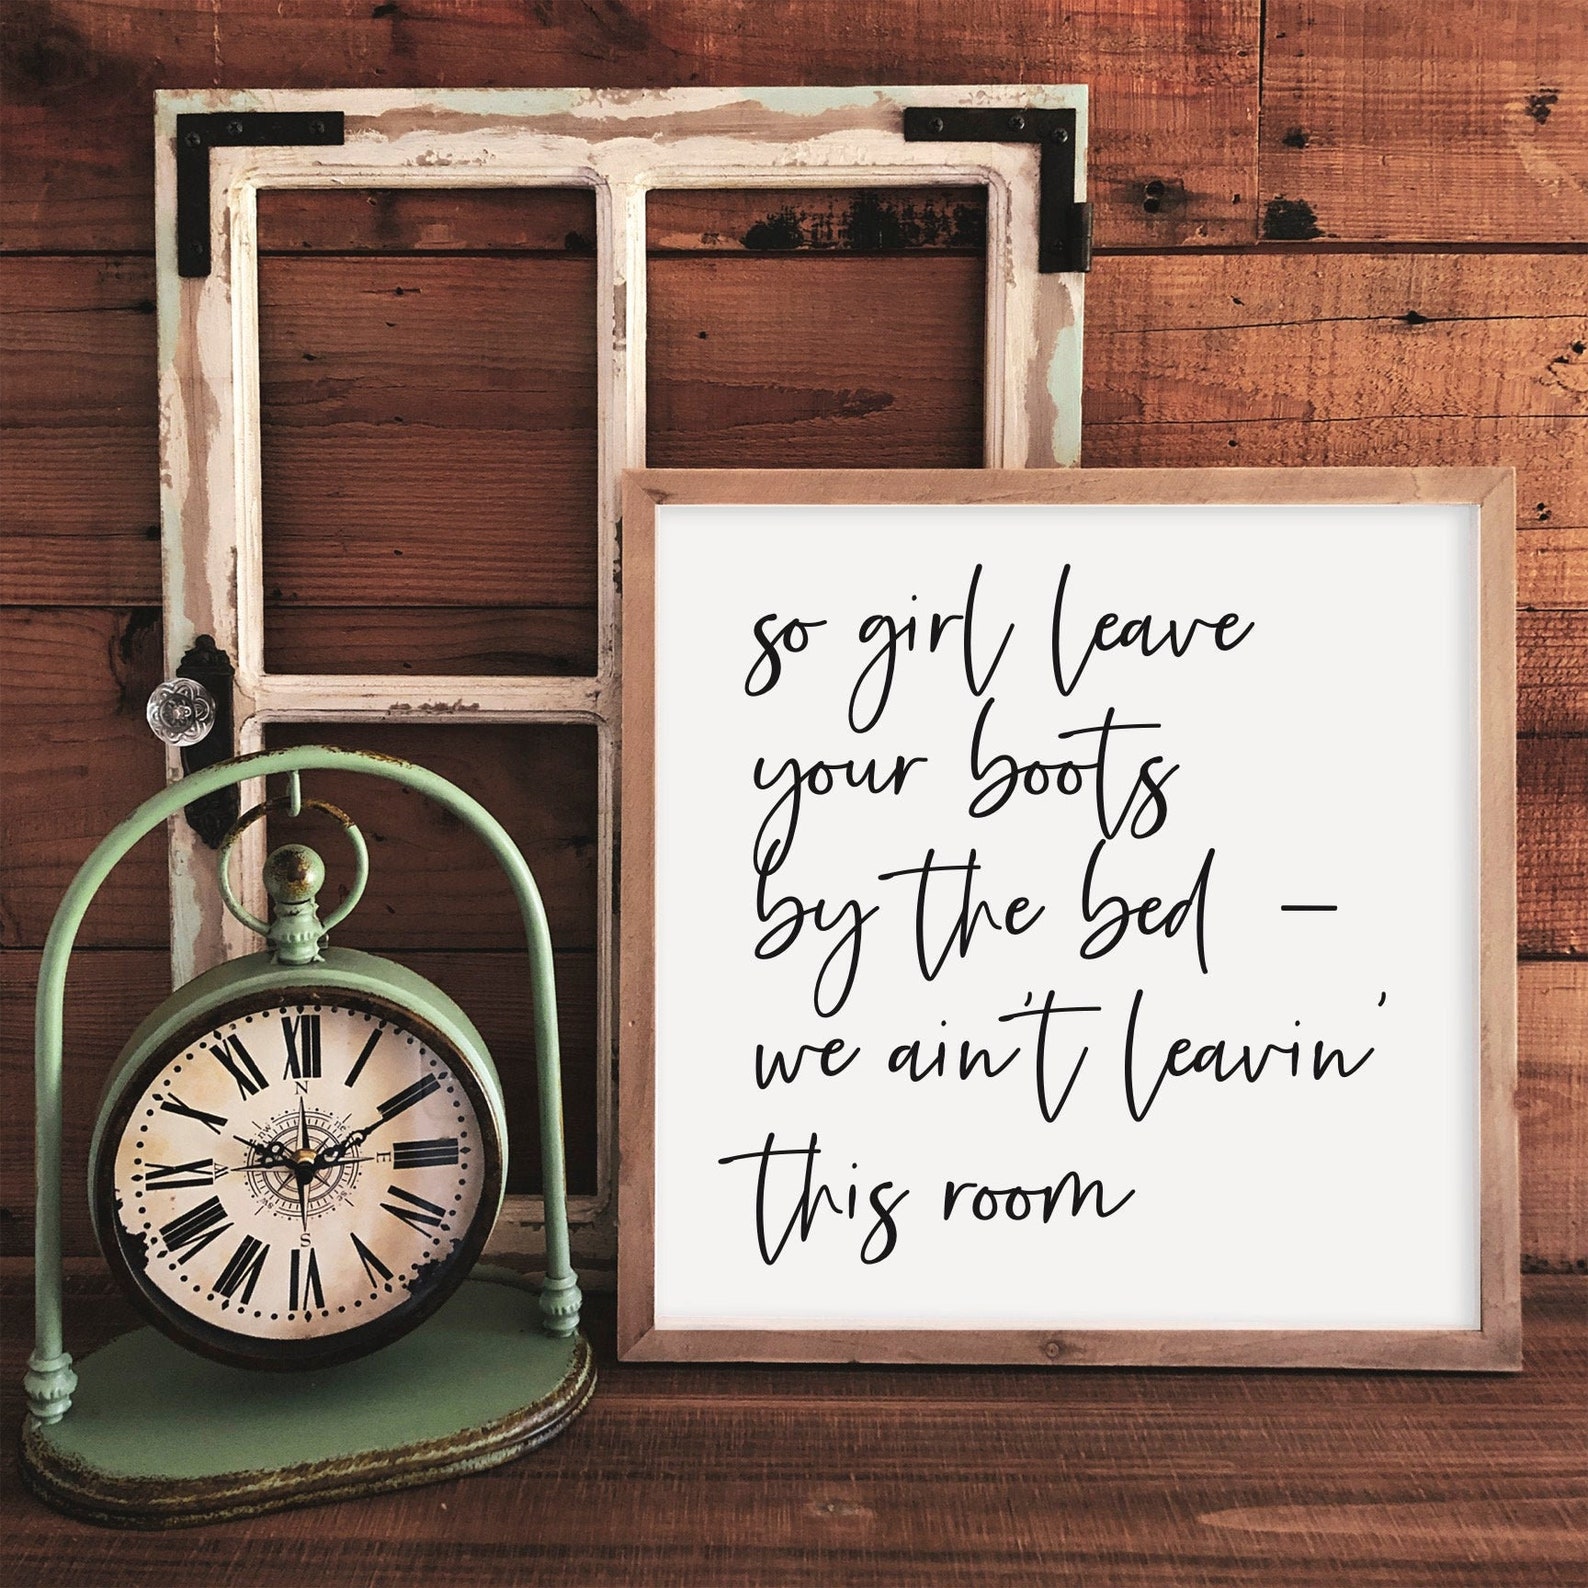 so girl leave
your boots
by the bed –
we ain't leavin'
this room
XII
I
II
III
IIII
V
VI
VII
VIII
IX
X
XI
N
ne
E
se
S
sw
W
nw